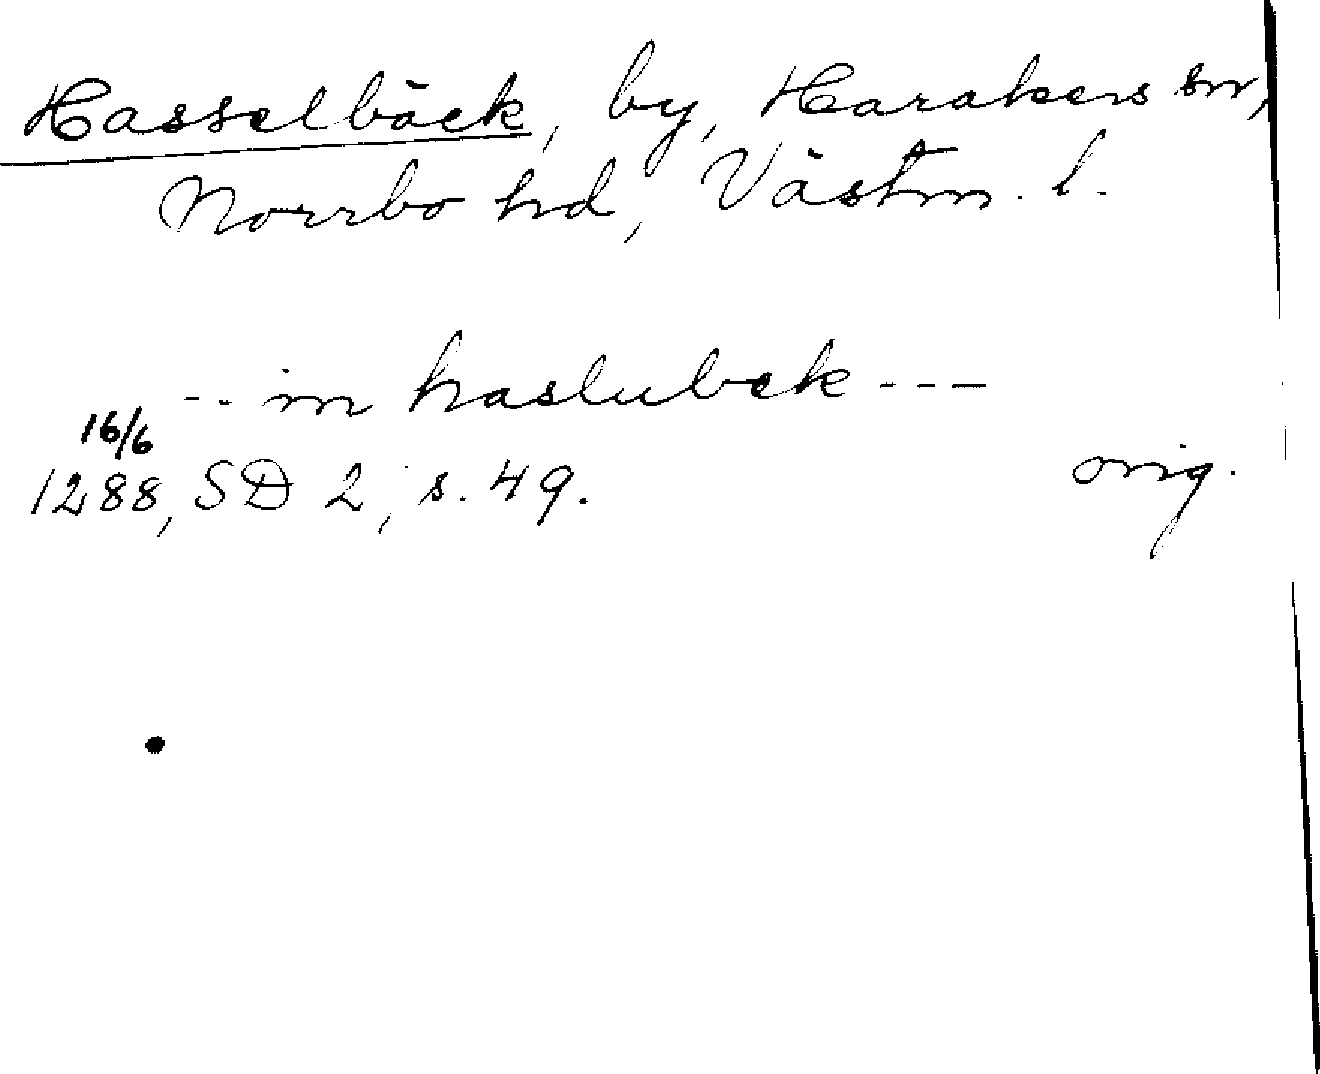 Hasselbäck, by, Harakers sn,
Norrbo hd, Västm. l.
-- in haslubek ---
16/6
1288, SD 2, s. 49.
orig.